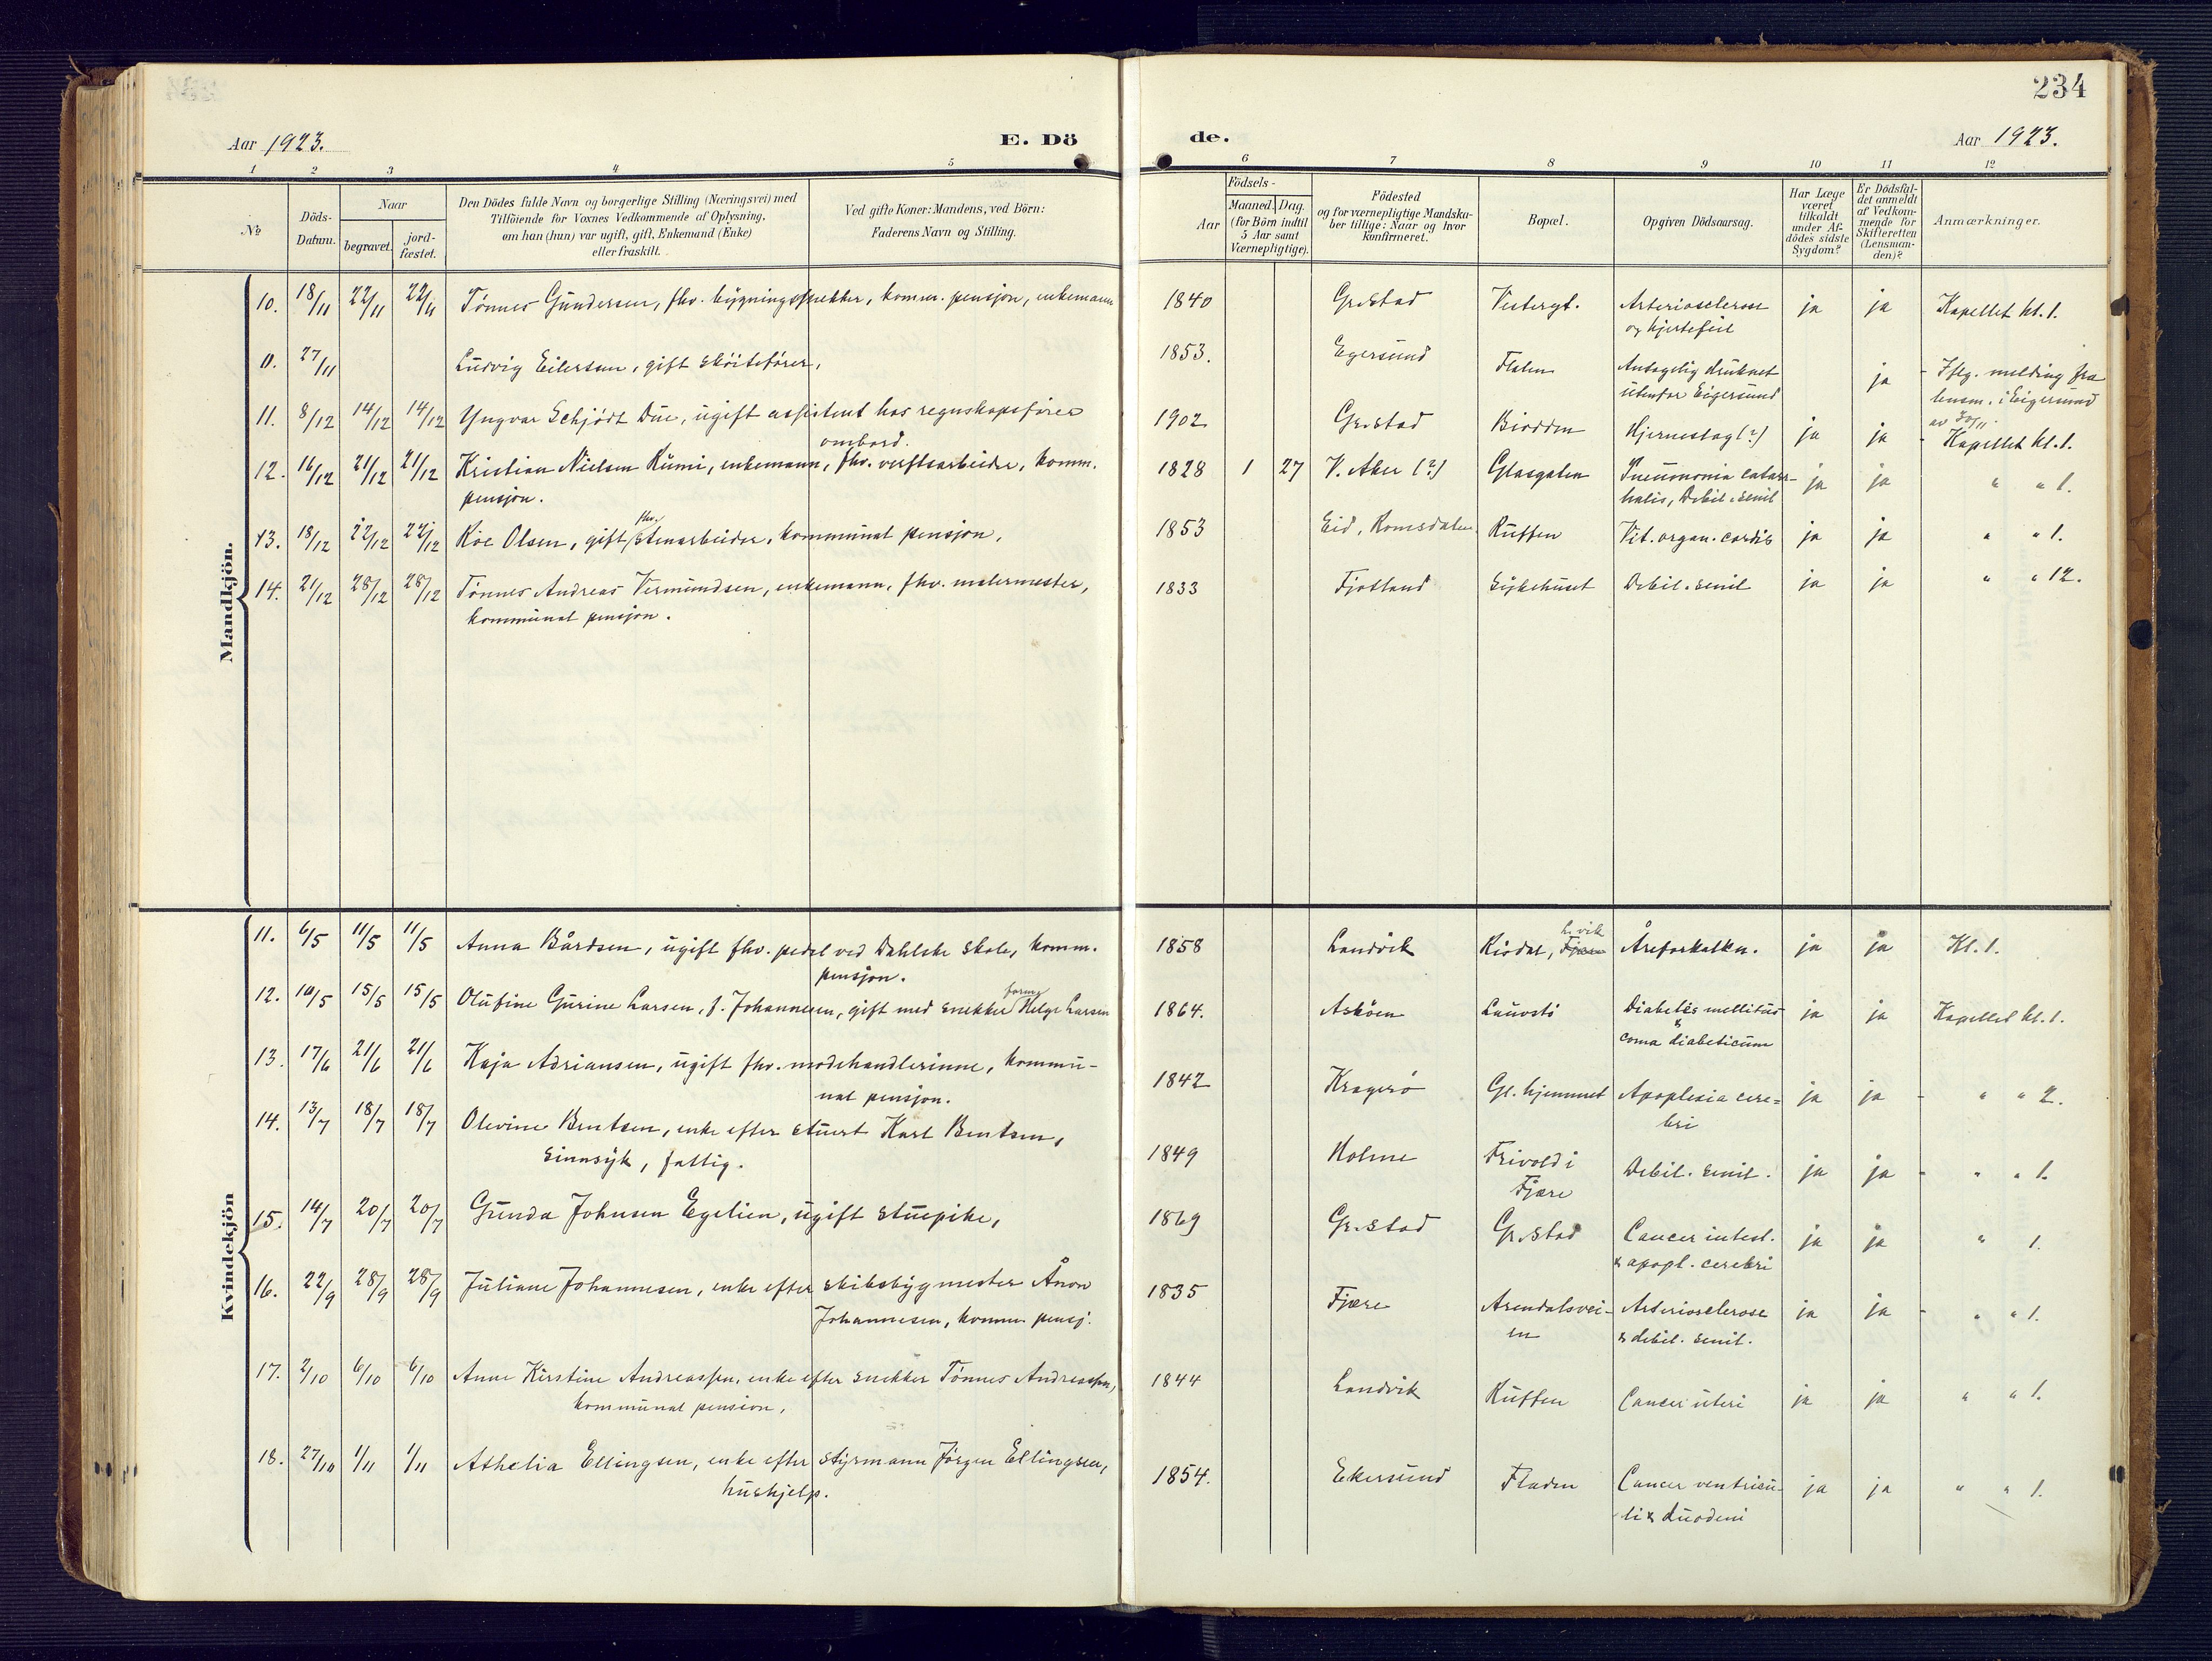 234
Aar 1923.
E. Dö
de.
Aar 1923.
1 2 3 4 5 6 7 8 9 10 11 12
No
Döds-Datum.
Naar
begravet.
jord-fæstet.
Den Dödes fulde Navn og borgerlige Stilling (Næringsvei) med
Tilföiende for Voxnes Vedkommende af Oplysning,
om han (hun) var ugift, gift, Enkemand (Enke)
eller fraskilt.
Ved gifte Koner: Mandens, ved Börn:
Faderens Navn og Stilling.
Födsels-
Aar
Maaned. Dag.
(for Börn indtil
5 Aar samt
Værnepligtige).
Födested
og for værnepligtige Mandska-
ber tillige: Naar og hvor
konfirmeret.
Bopæl.
Opgiven Dödsaarsag.
Har Læge
været
tilkaldt
under Af-
dödes sidste
Sygdom?
Er Dödsfal-
det anmeldt
af Vedkom-
mende for
Skifteretten
(Lensman-
den)?
Anmærkninger.
Mandkjön.
10. 18/11 22/11 22/11 Tönnes Gundersen, fhv. bygningssnekker, komm. pensjon, enkemann 1840 Gr.stad Vestergt. Arteriosclerose ja ja Kapellet kl. 1.
og hjertefeil
11. 27/11 Ludvig Eilertsen, gift sköitefører, 1853. Egersund Fladen Antagelig druknet ja - Iflg. melding fra
utenfor Eigersund lensm. i Eigersund
av 30/11.
11. 8/12 14/12 14/12 Yngvar Schjödt Due, ugift assistent hos regnskapsfører 1902 Gr.stad Biodden Hjerneslag (?) ja ja - Kapellet kl. 1.
ombord.
12. 16/12 21/12 21/12 Kristian Nielsen Rumi, enkemann, fhv. verftsarbeider, komm. 1828 1 27 V. Aker (?) Glasgaten Pneumonia catarr- ja ja " " 1.
pensjon. halis, Debil. senil
13. 18/12 22/12 22/12 Roe Olsen, gift fhv. stenarbeider, kommunal pensjon, 1853 Eid, Romsdalen Kuffen Vit. organ. cordis ja ja " " 1.
14. 21/12 28/12 28/12 Tönnes Andreas Vermundsen, enkemann, fhv. malermester, 1833 Fjotland Sykehuset Debil. senil ja ja " " 12.
kommunal pensjon.
Kvindekjön
11. 6/5 11/5 11/5 Anna Bårdsen, ugift fhv. pedel ved Dahlske skole, komm. 1858 Landvik Rödal, Fjære L.vik Åreforkalkn. ja ja Kl. 1.
pensjon.
12. 10/5 15/5 15/5 Olufine Gurine Larsen, f. Johannesen, gift med snekker form. Helge Larsen 1864. Asköen Lauvstö Diabetes mellitus ja ja Kapellet kl. 1.
& coma diabeticum
13. 17/6 21/6 21/6 Kaja Adriansen, ugift fhv. modehandlerinne, kommu- 1842 Kragerö Gl. hjemmet Apoplexia cere- ja ja - " " 2.
nal pensjon. bri
14. 13/7 18/7 18/7 Olevine Bentsen, enke efter stuert Karl Bentsen, 1849 Holme Frivold i Debil. senil. ja ja - " " 1.
sinnsyk, fattig. Fjære
15. 14/7 20/7 20/7 Gunda Johnsen Egelien, ugift stuepike, 1869 Gr.stad Gr.stad Cancer intest. ja ja " 1.
& apopl. cerebri
16. 22/9 28/9 28/9 Juliane Johannesen, enke efter skibsbygmester Ånon 1835 Fjære Arendalsvei- Arteriosclerose ja ja - " " 1.
Johannesen, komm. pensj. en & debil. senil.
17. 2/10 6/10 6/10 Anne Kirstine Andreassen, enke efter snekker Tönnes Andreassen, 1844 Landvik Kuffen Cancer uteri ja ja " " 1.
kommunal pension,
18. 27/10 1/11 1/11 Athelia Ellingsen, enke efter styrmann Jörgen Ellingsen, 1854. Ekersund Fladen Cancer ventricu- ja ja " " 1.
hushjelp. li & duodeni